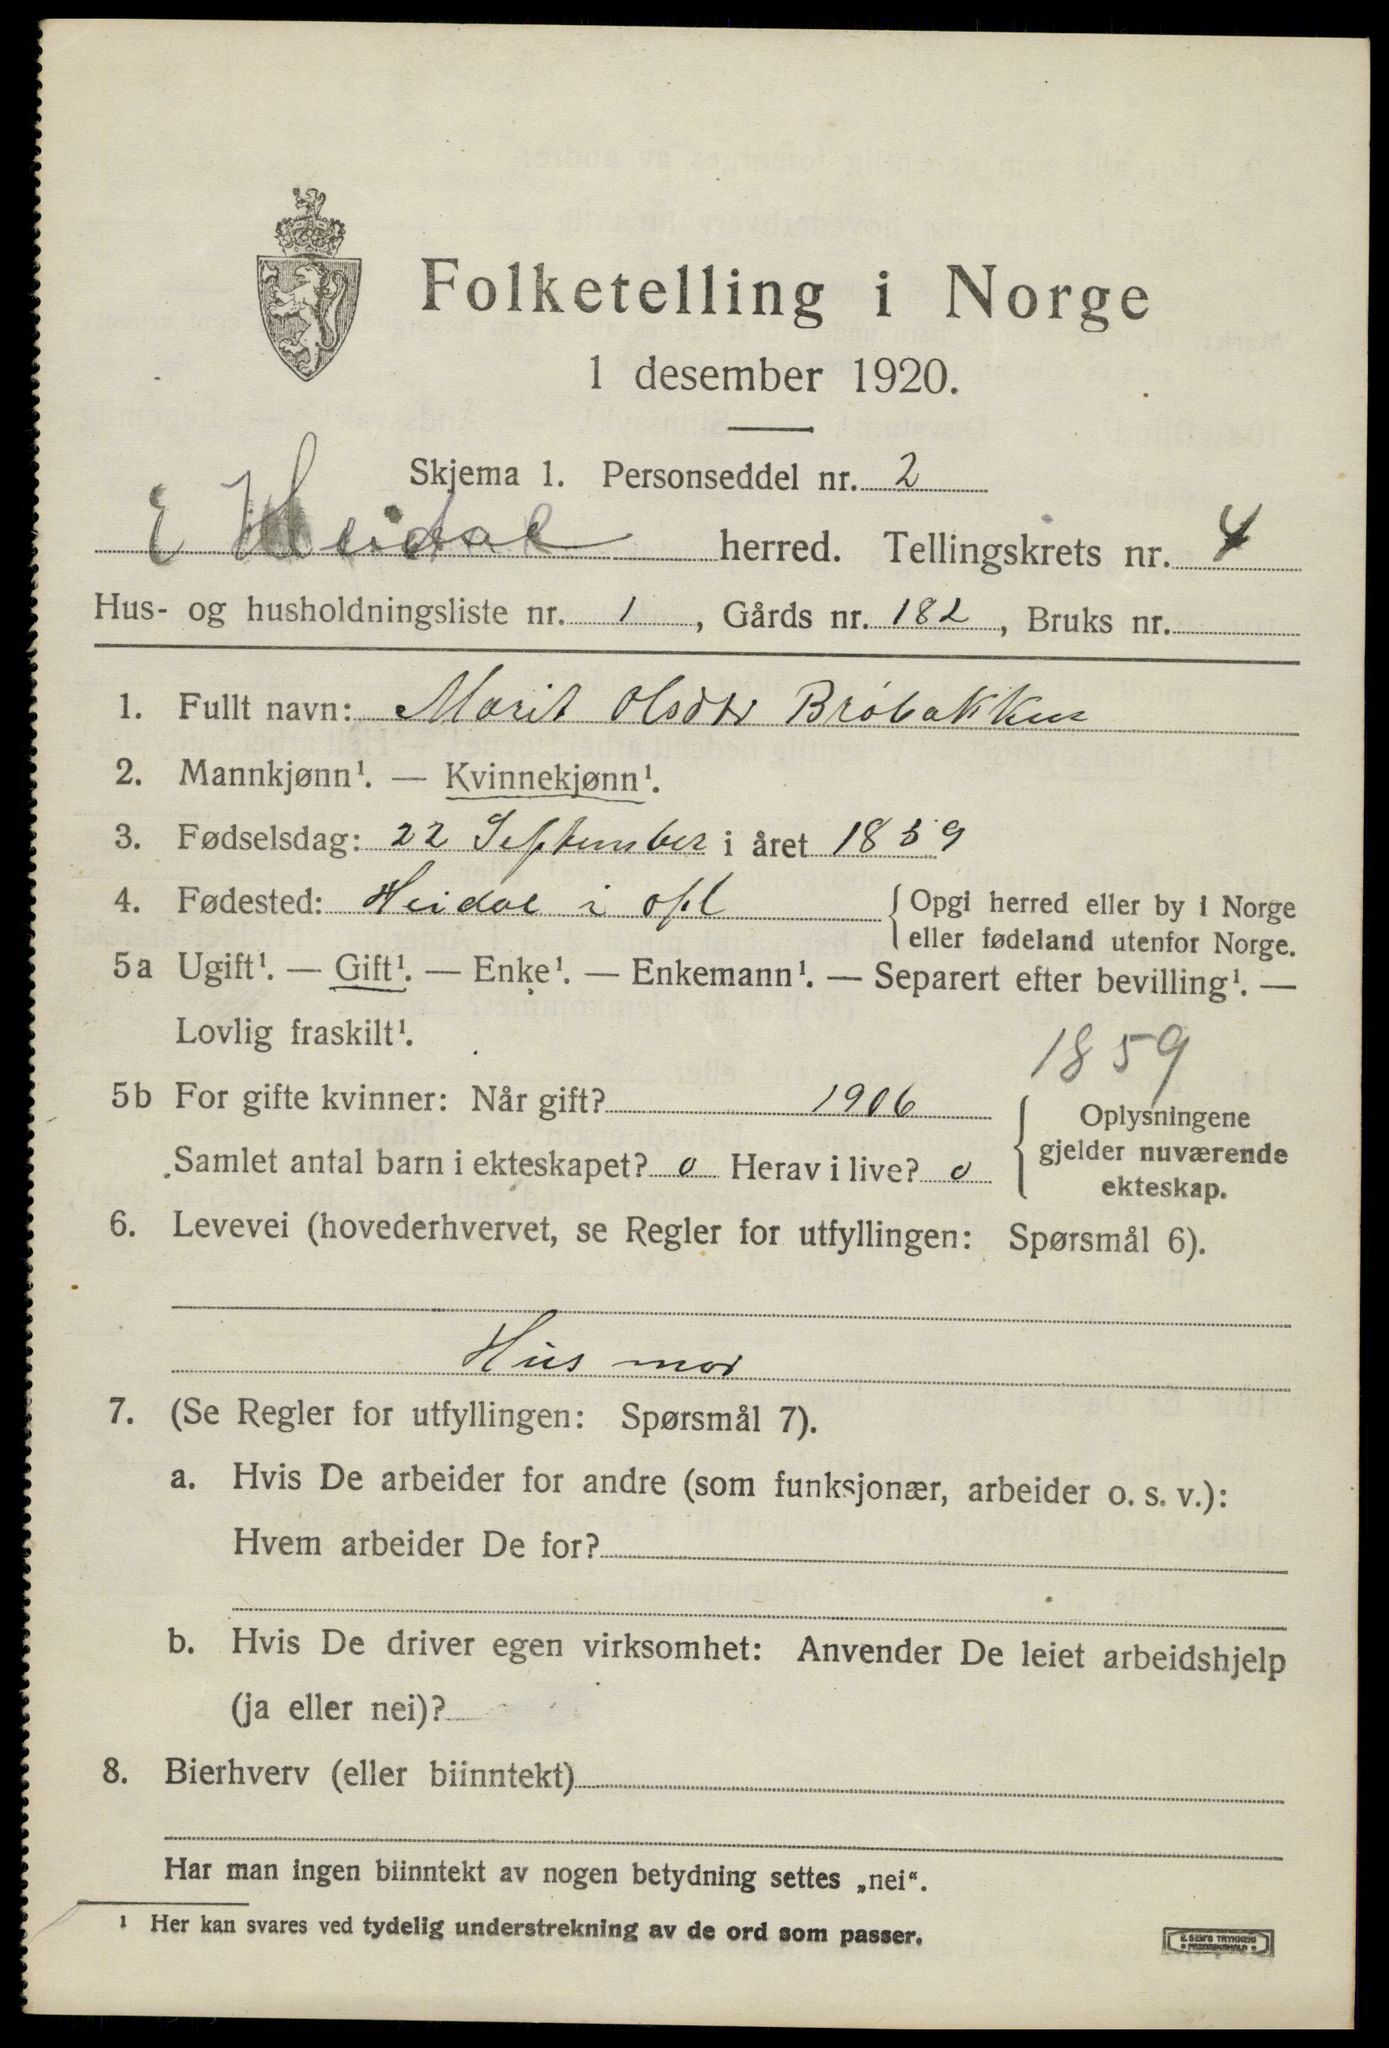 Folketelling i Norge
1 desember 1920.
Skjema 1. Personseddel nr. 2
E Heidal herred. Tellingskrets nr. 4
Hus- og husholdningsliste nr. 1, Gårds nr. 182, Bruks nr.
1. Fullt navn: Marit Olsdtr Bröbakken
2. Mannkjønn¹. — Kvinnekjønn¹.
3. Fødselsdag: 22 September i året 1859
4. Fødested: Heidal i opl { Opgi herred eller by i Norge
eller fødeland utenfor Norge.
5a Ugift¹. — Gift¹. — Enke¹. — Enkemann¹. — Separert efter bevilling¹. —
Lovlig fraskilt¹.
1859
5b For gifte kvinner: Når gift? 1906
Samlet antal barn i ekteskapet? 0 Herav i live? 0
{ Oplysningene
gjelder nuværende
ekteskap.
6. Levevei (hovederhvervet, se Regler for utfyllingen: Spørsmål 6).
Hus mor
7. (Se Regler for utfyllingen: Spørsmål 7).
a. Hvis De arbeider for andre (som funksjonær, arbeider o. s. v.):
Hvem arbeider De for?
b. Hvis De driver egen virksomhet: Anvender De leiet arbeidshjelp
(ja eller nei)?
8. Bierhverv (eller biinntekt)
Har man ingen biinntekt av nogen betydning settes „nei".
¹ Her kan svares ved tydelig understrekning av de ord som passer.
E. SEM'S TRYKKERI
FREDRIKSHALD